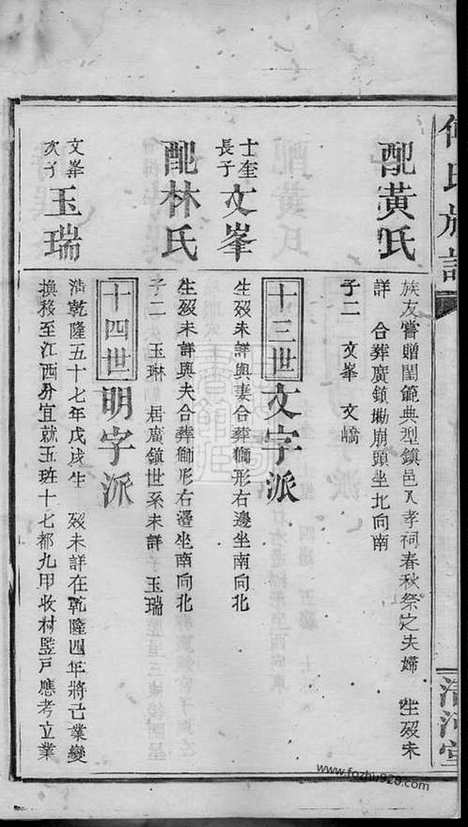 氏族
配黃氏
族友嘗贈閨範典型鎮邑入孝祠春秋祭之夫婦 生歿未
詳 合葬廣鎮坳崩頭坐北向南
子二 文峯 文嶠
十三世文字派
士奎
長子
文峯
生歿未詳與妻合葬獅形右邊坐南向北
配林氏
生歿未詳與夫合葬獅形右邊坐南向北
子二 玉琳 居廣鎮世系未詳 玉瑞
十四世明字派
文峯
次子
玉瑞
清乾隆五十七年戊戌生 歿未詳在乾隆四年將己業變
換移至江西分宜就玉班十七都九甲收村監戶應考立業
www.fozhu920.com